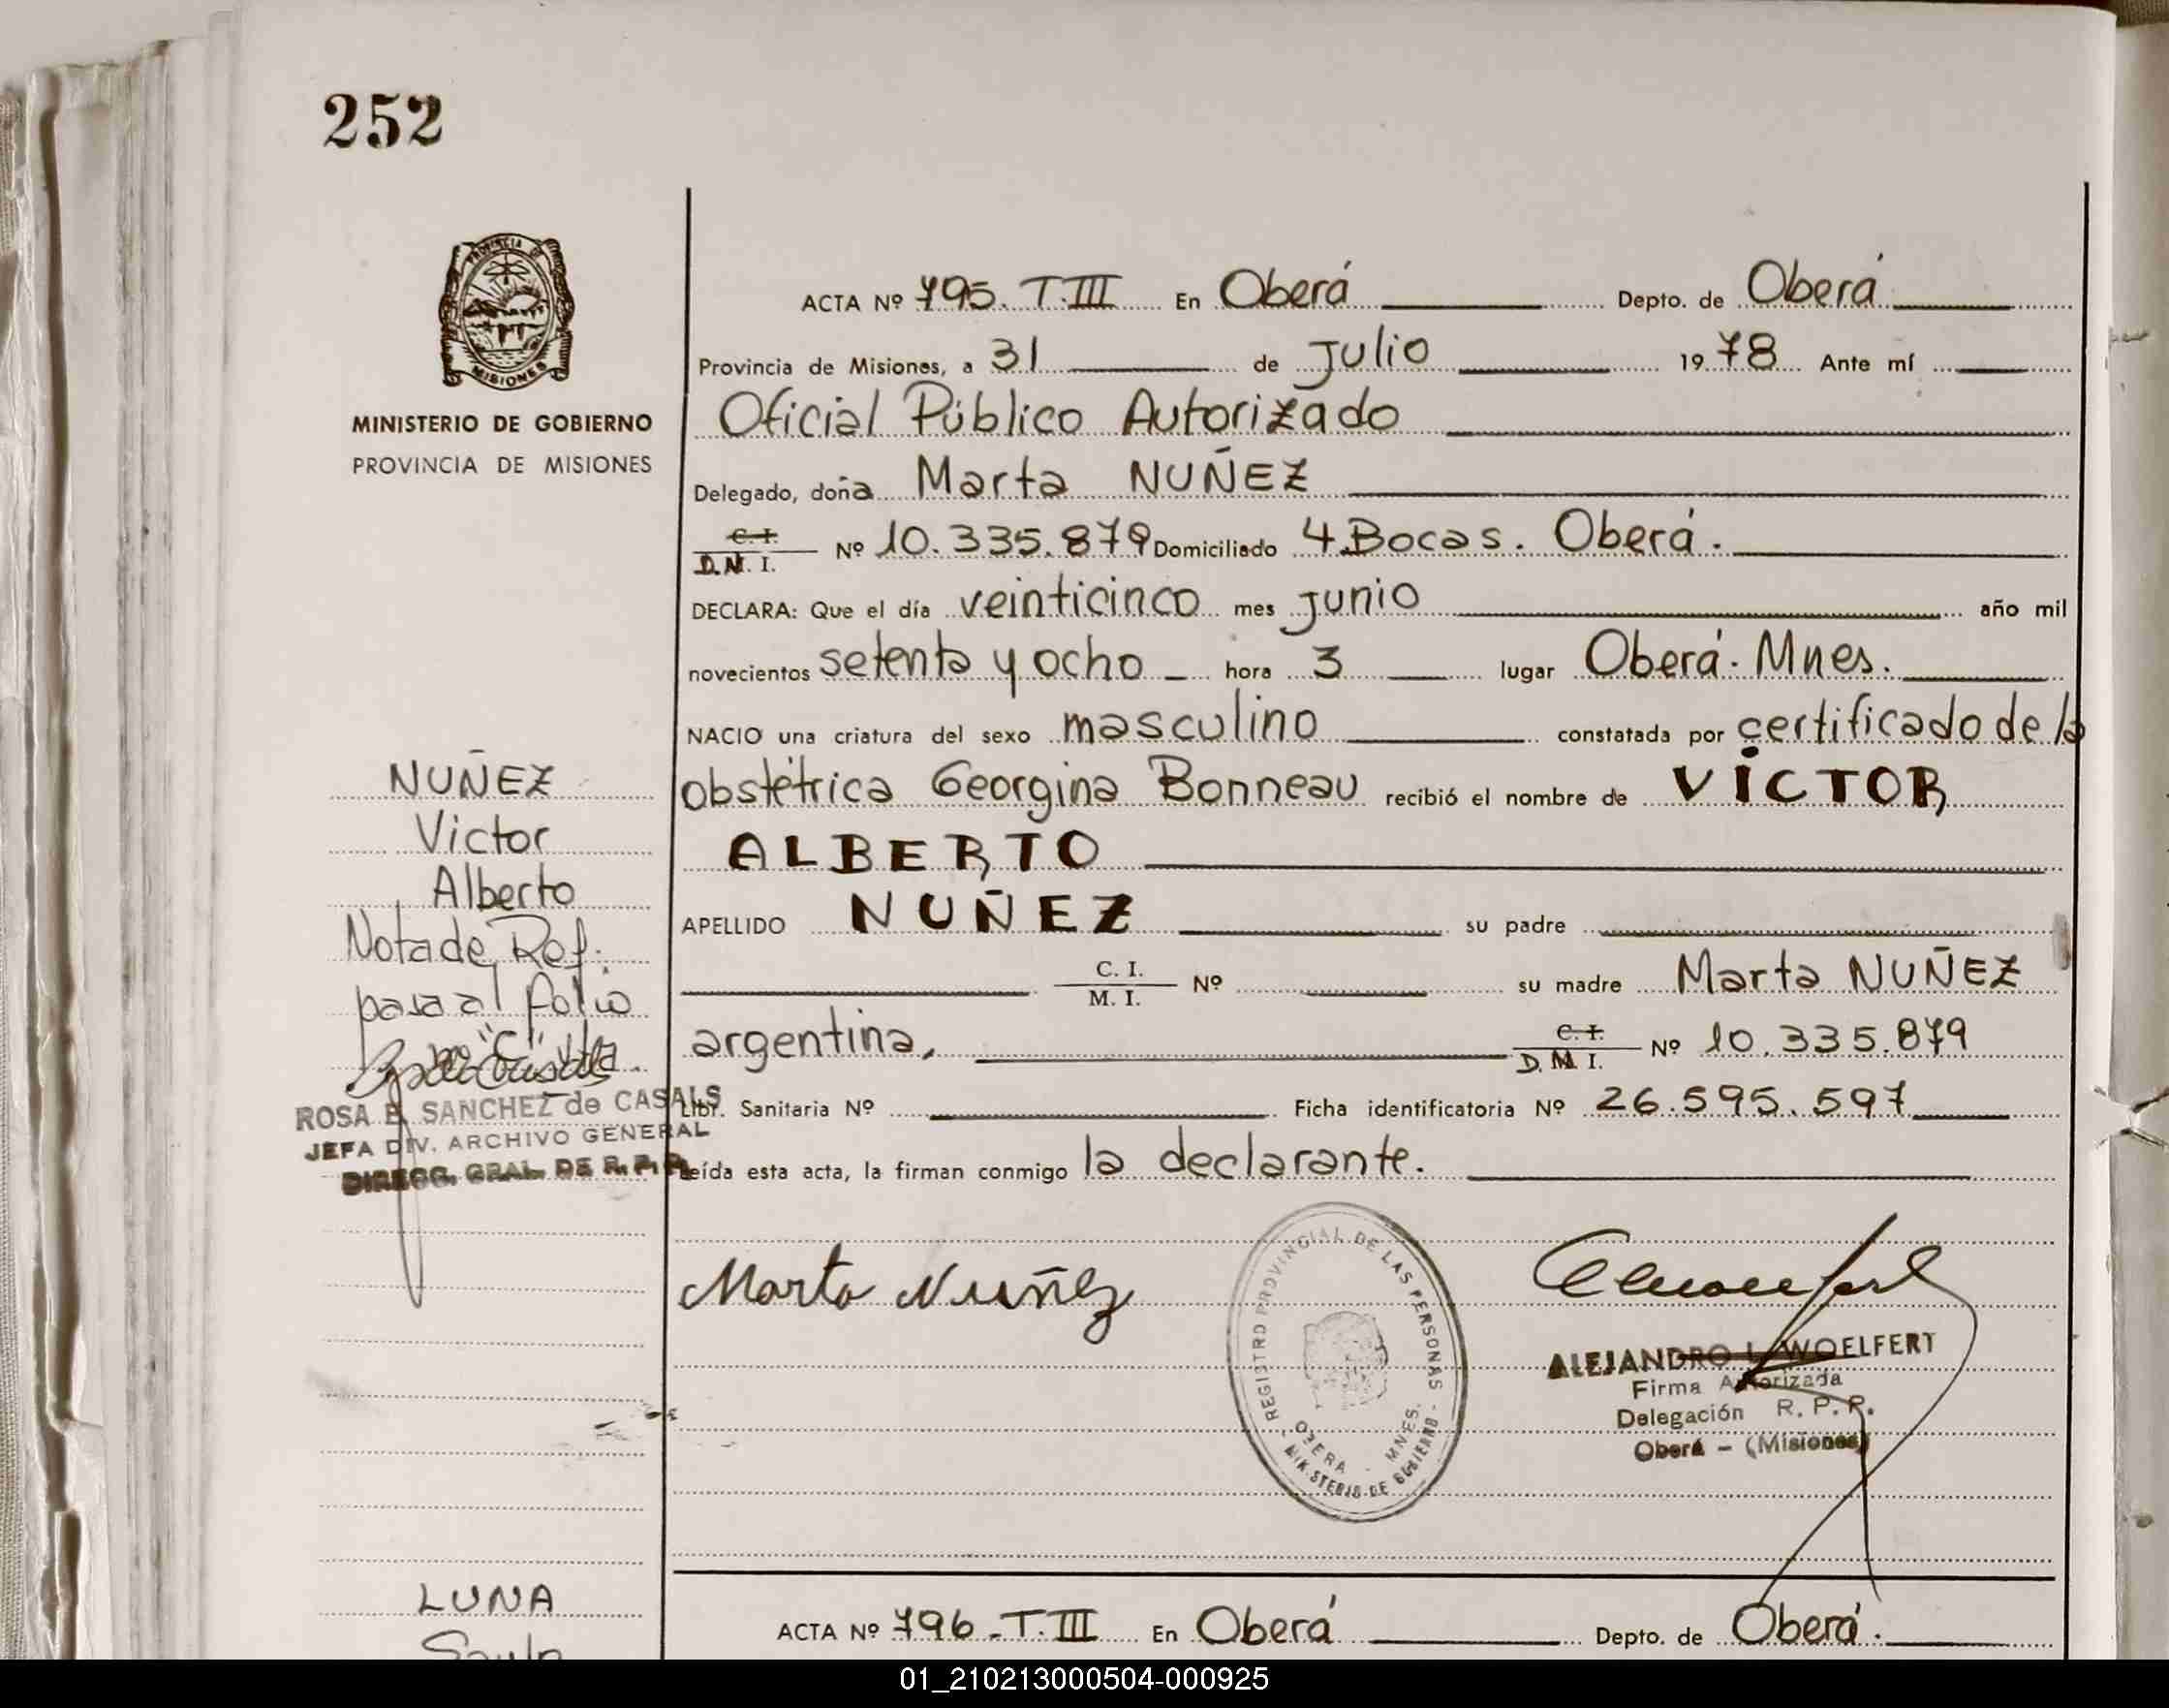 252
PROVINCIA DE
MISIONES
MINISTERIO DE GOBIERNO
PROVINCIA DE MISIONES
ACTA Nº 795. T.III En Oberá Depto. de Oberá
Provincia de Misiones, a 31 de Julio 1978 Ante mí
Oficial Público Autorizado
Delegado, doña Marta NUÑEZ
C.I. D.N.I. Nº 10.335.879 Domiciliado 4 Bocas. Oberá.
DECLARA: Que el día veinticinco mes junio año mil
novecientos setenta y ocho hora 3 lugar Oberá. Mnes.
NACIO una criatura del sexo masculino constatada por certificado de la
obstétrica Georgina Bonneau recibió el nombre de VÍCTOR
ALBERTO
APELLIDO NUÑEZ su padre
C. I. M. I. Nº su madre Marta NUÑEZ
argentina, C.I. D.M.I. Nº 10.335.879
Libr. Sanitaria Nº Ficha identificatoria Nº 26.595.597
Leída esta acta, la firman conmigo la declarante.
NUÑEZ
Victor
Alberto
Nota de Ref.
pasa al folio
"C" vta.
ROSA E. SANCHEZ de CASALS
JEFA DIV. ARCHIVO GENERAL
DIRECC. GRAL. DE R. P. P.
Marta Nuñez
REGISTRO PROVINCIAL DE LAS PERSONAS
OBERA - MNES.
MINISTERIO DE GOBIERNO
ALEJANDRO L. WOELFERT
Firma Autorizada
Delegación R. P. P.
Oberá - (Misiones)
LUNA
ACTA Nº 796-T.III En Oberá Depto. de Oberá.
01_210213000504-000925